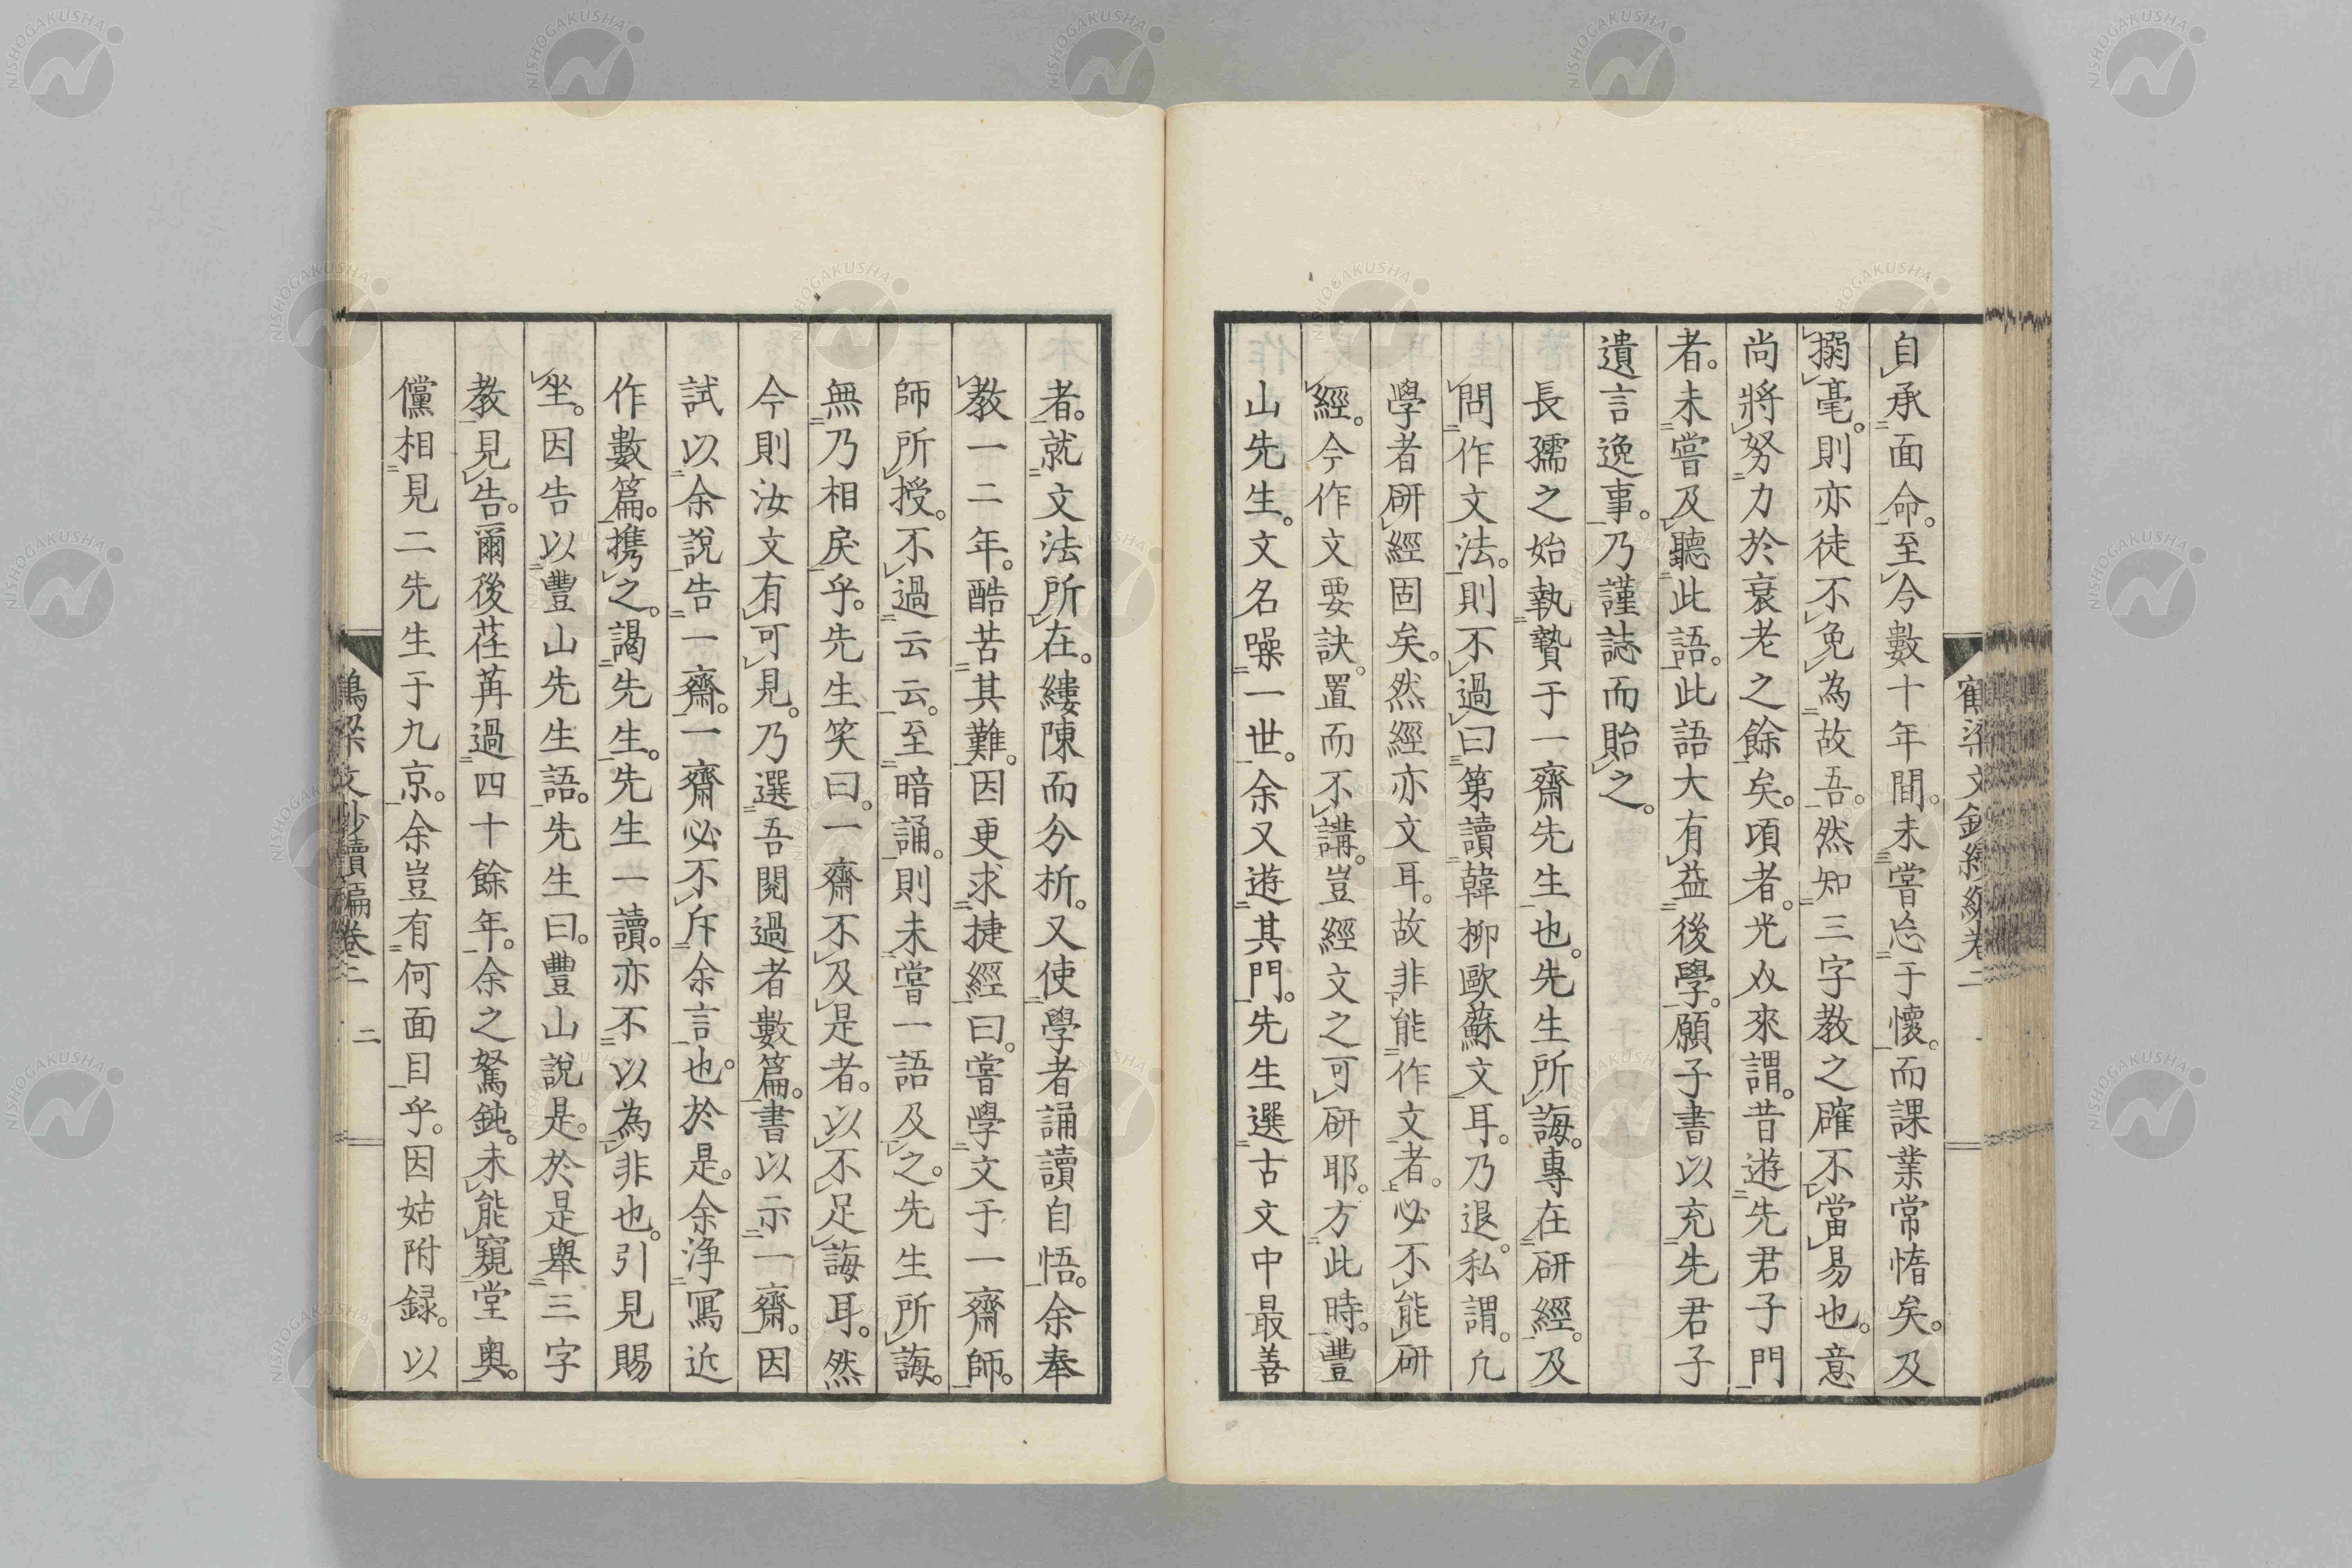 自承面命。至今數十年間。未嘗忘于懷。而課業常惰矣。及
搦毫。則亦徒不免為故吾。然知三字教之確不當易也。意
尚將努力於衰老之餘矣。頃者。光𠈌來謂。昔遊先君子門
者。未嘗及聽此語。此語大有益後學。願子書以充先君子
遺言逸事。乃謹誌而貽之。
長孺之始執贄于一齋先生也。先生所誨。專在研經。及
問作文法。則不過曰第讀韓柳歐蘇文耳。乃退。私謂。凢
學者研經固矣。然經亦文耳。故非能作文者。必不能研
經。今作文要訣。置而不講。豈經文之可研耶。方此時。豐
山先生。文名噪一世。余又遊其門。先生選古文中最善
者。就文法所在。縷陳而分析。又使學者誦讀自悟。余奉
教一二年。酷苦其難。因更求捷經曰。嘗學文于一齋師。
師所授。不過云云。至暗誦。則未嘗一語及之。先生所誨。
無乃相戾乎。先生笑曰。一齋不及是者。以不足誨耳。然
今則汝文有可見。乃選吾閱過者數篇。書以示一齋。因
試以余說告一齋。一齋必不斥余言也。於是。余浄寫近
作數篇。携之。謁先生。先生一讀。亦不以為非也。引見賜
坐。因告以豐山先生語。先生曰。豐山說是。於是舉三字
教見告。爾後荏苒過四十餘年。余之駑鈍。未能窺堂奧。
儻相見二先生于九京。余豈有何面目乎。因姑附録。以
鶴梁文鈔續編卷二 二